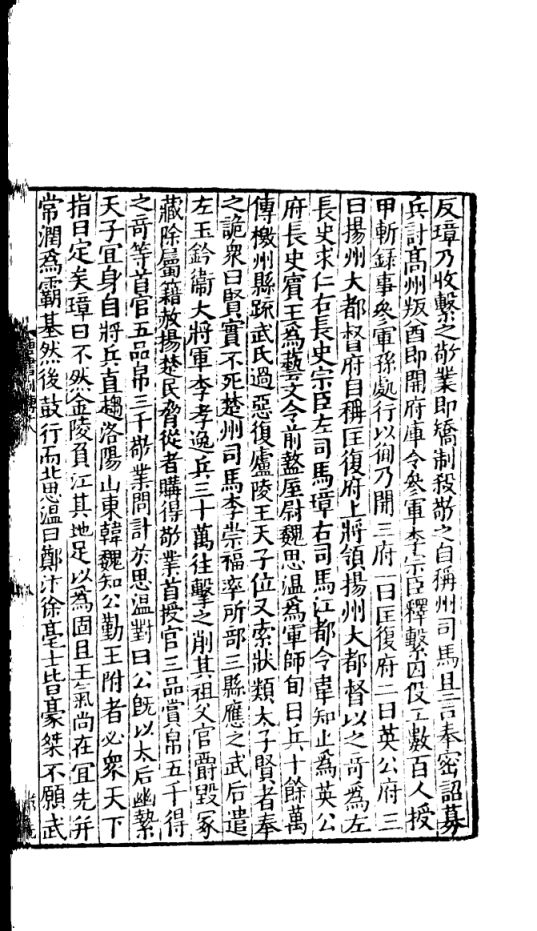 反璋乃收繫之敬業即矯制殺敬之自稱州司馬且言奉密詔募
兵計高州叛酋即開府庫令參軍李宗臣釋繫囚役工數百人授
甲斬録事參軍孫處行以徇乃開三府一曰匡復府二曰英公府三
曰揚州大都督府自稱匡復府上將領揚州大都督以之奇爲左
長史求仁右長史宗臣左司馬璋右司馬江都令韋知止爲英公
府長史賓王爲藝文令前盩厔尉魏思温爲軍師旬日兵十餘萬
傳檄州縣疏武氏過惡復廬陵王天子位又索狀類太子賢者奉
之詭衆曰賢實不死楚州司馬李崇福率所部三縣應之武后遣
左玉鈐衞大將軍李孝逸兵三十萬往擊之削其祖父官爵毀冢
藏除屬籍赦揚楚民脅從者購得敬業首授官三品賞帛五千得
之奇等首官五品帛三千敬業問計於思温對曰公旣以太后幽縶
天子宜身自將兵直趨洛陽山東韓魏知公勤王附者必衆天下
指日定矣璋曰不然金陵負江其地足以為固且王氣尚在宜先并
常潤爲霸基然後鼓行而北思温曰鄭汴徐亳士皆豪桀不願武